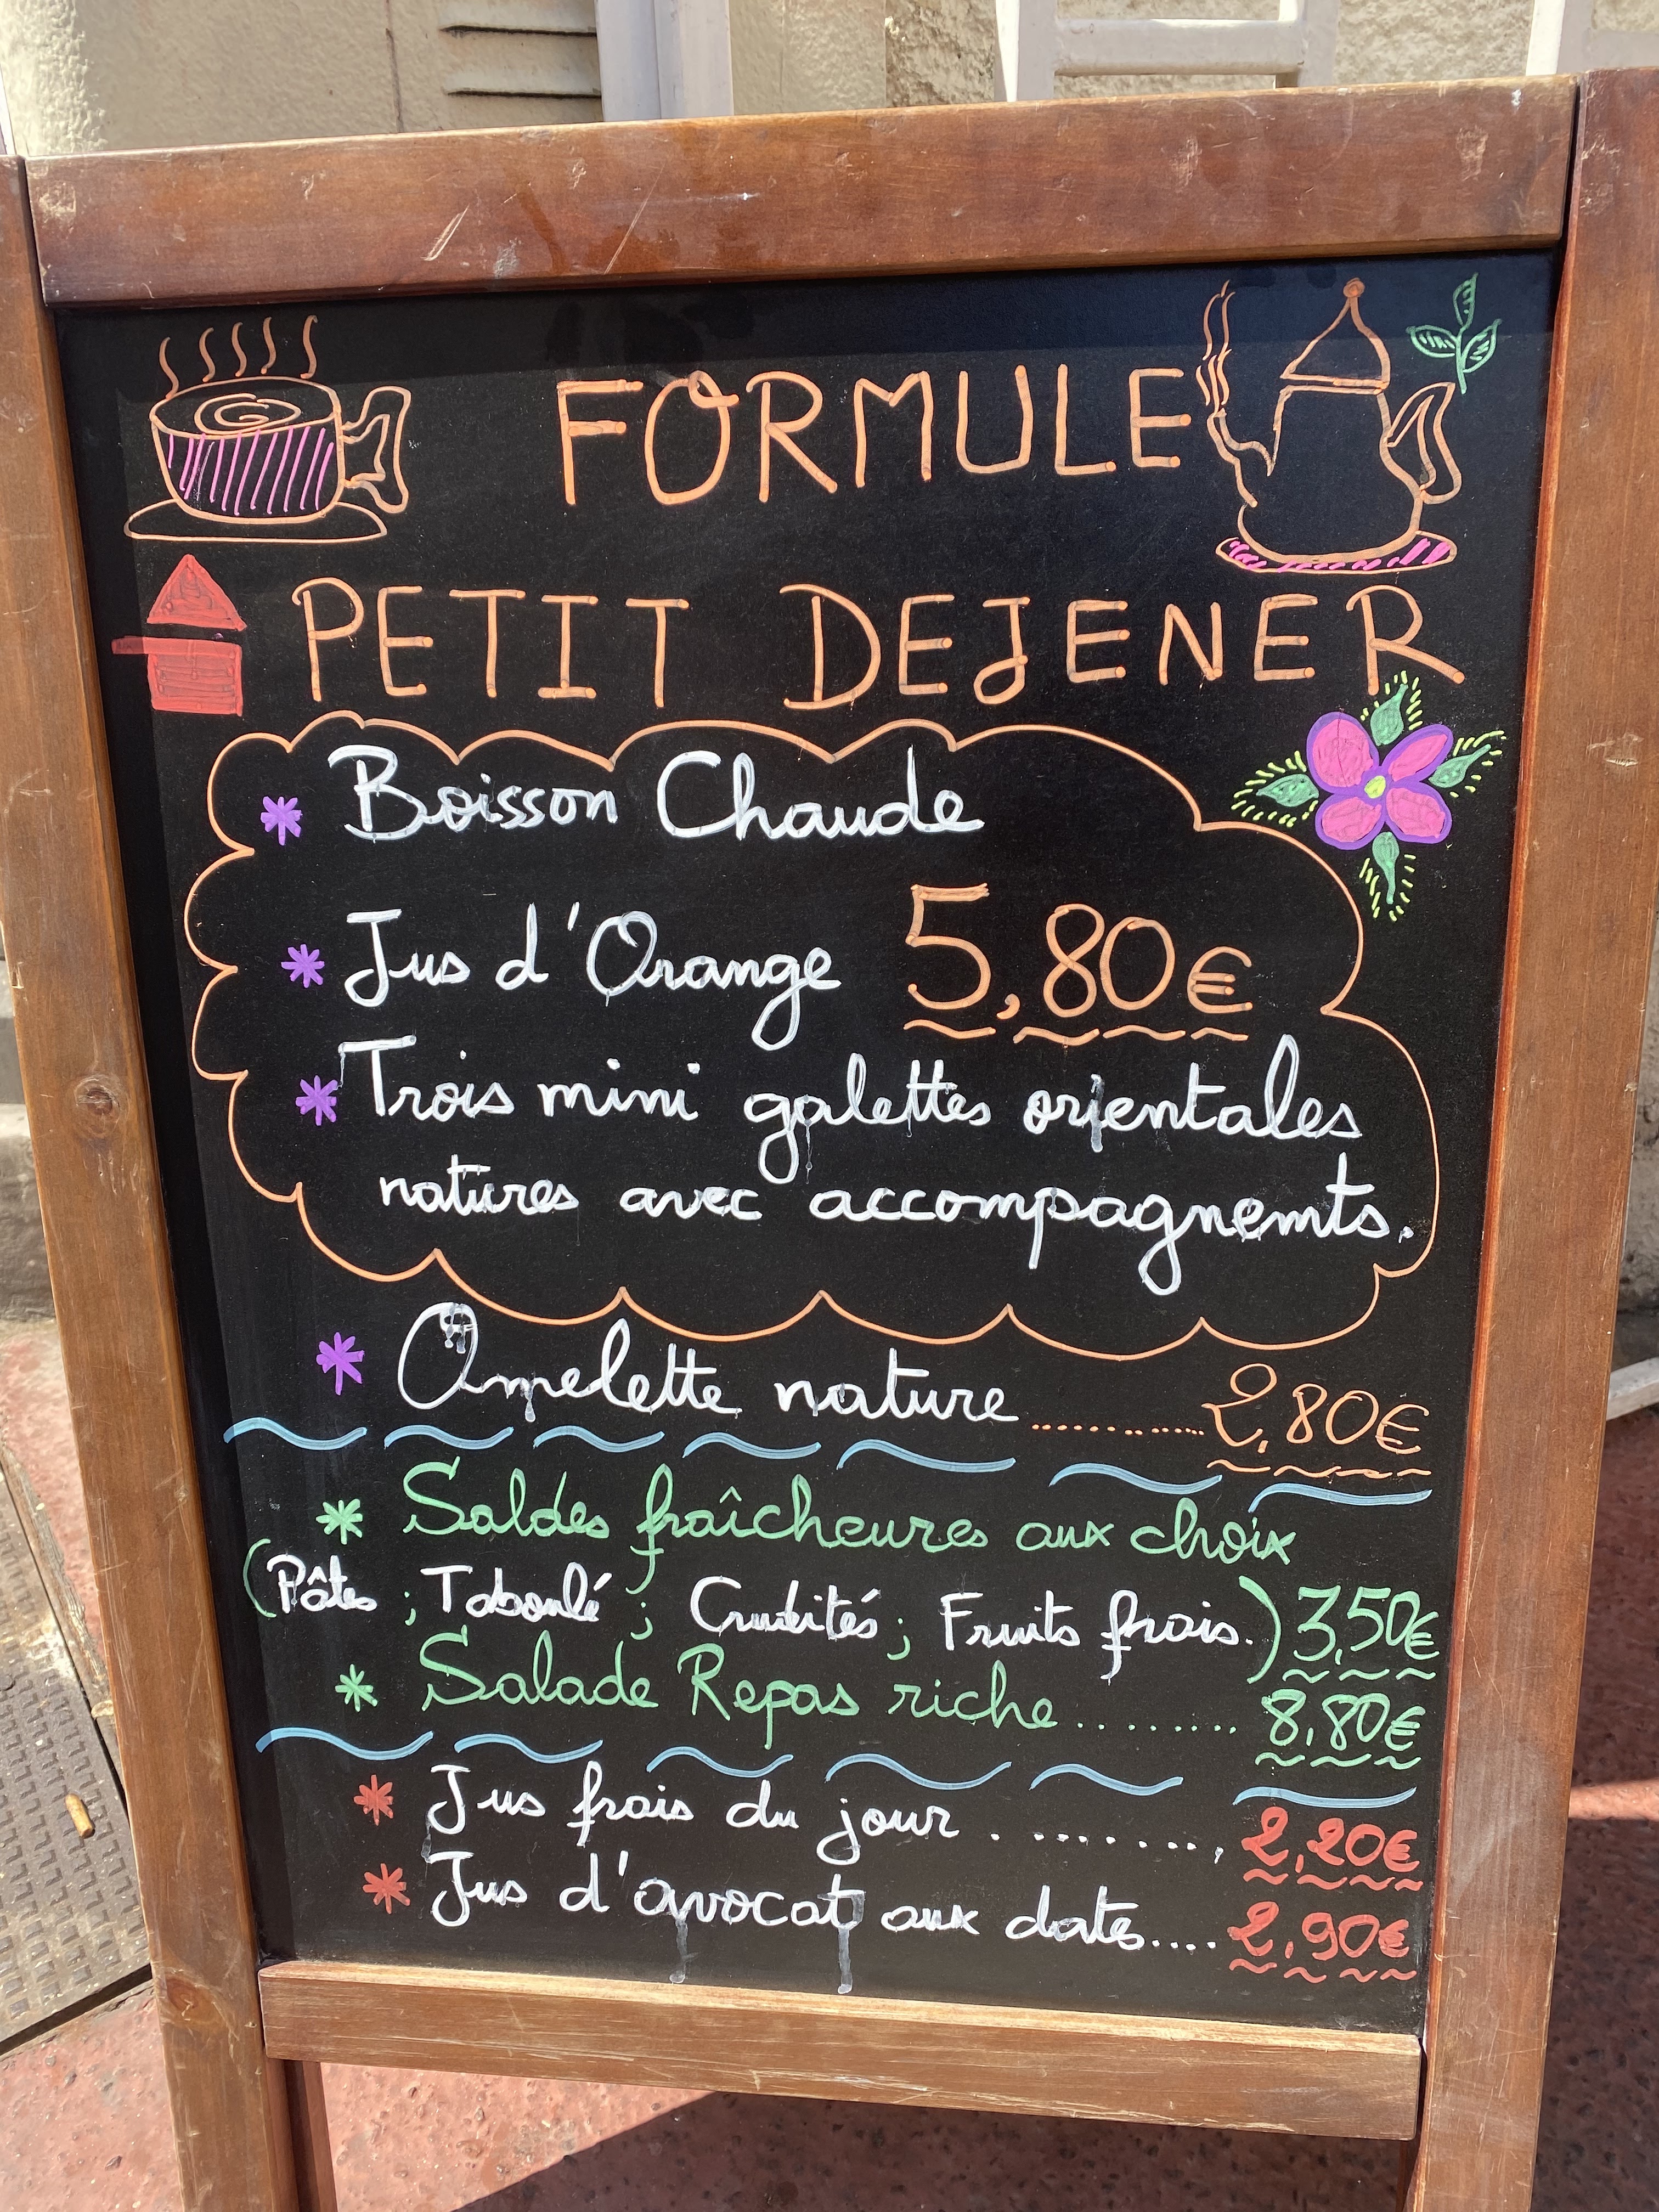 FORMULE
PETIT DEJENER
* Boisson Chaude
* Jus d'Orange 5,80€
* Trois mini galettes orientales
natures avec accompagnemts.
* Omelette nature............2,80€
* Saldes fraîcheures aux choix
(Pâtes ; Taboulé ; Crudités ; Fruits frais.) 3,50€
* Salade Repas riche......... 8,80€
* Jus frais du jour ......... 2,20€
* Jus d'avocat aux dates.... 2,90€